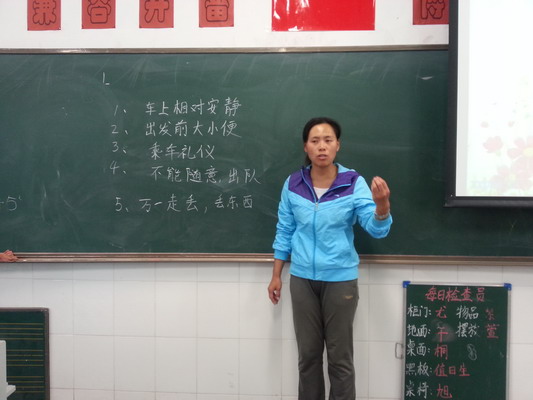 兼容并蓄
1、车上相对安静
2、出发前大小便
3、乘车礼仪
4、不能随意出队
5、万一走丢，丢东西
每日检查员
柜门：尤 物品
地面：午 摆放 萱
桌面：桐
黑板：值日生
桌椅：旭